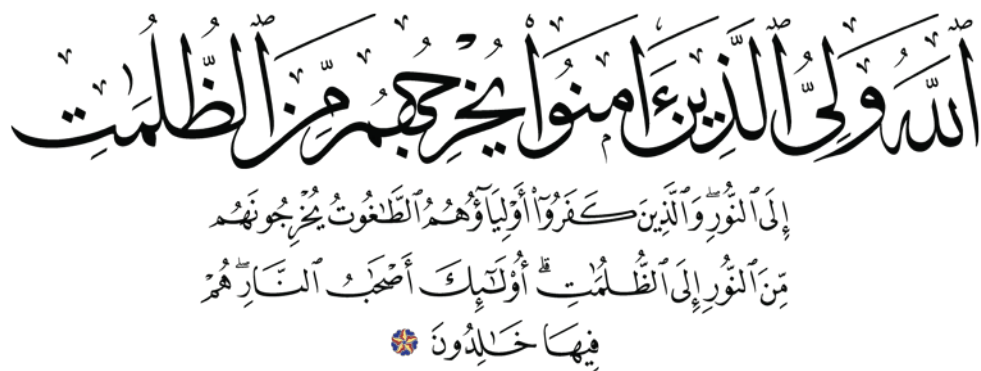 ٱللَّهُ وَلِيُّ ٱلَّذِينَ ءَامَنُوا۟ يُخْرِجُهُم مِّنَ ٱلظُّلُمَٰتِ
إِلَى ٱلنُّورِۖ وَٱلَّذِينَ كَفَرُوٓا۟ أَوْلِيَآؤُهُمُ ٱلطَّٰغُوتُ يُخْرِجُونَهُم
مِّنَ ٱلنُّورِ إِلَى ٱلظُّلُمَٰتِۗ أُو۟لَٰٓئِكَ أَصْحَٰبُ ٱلنَّارِۖ هُمْ
فِيهَا خَٰلِدُونَ